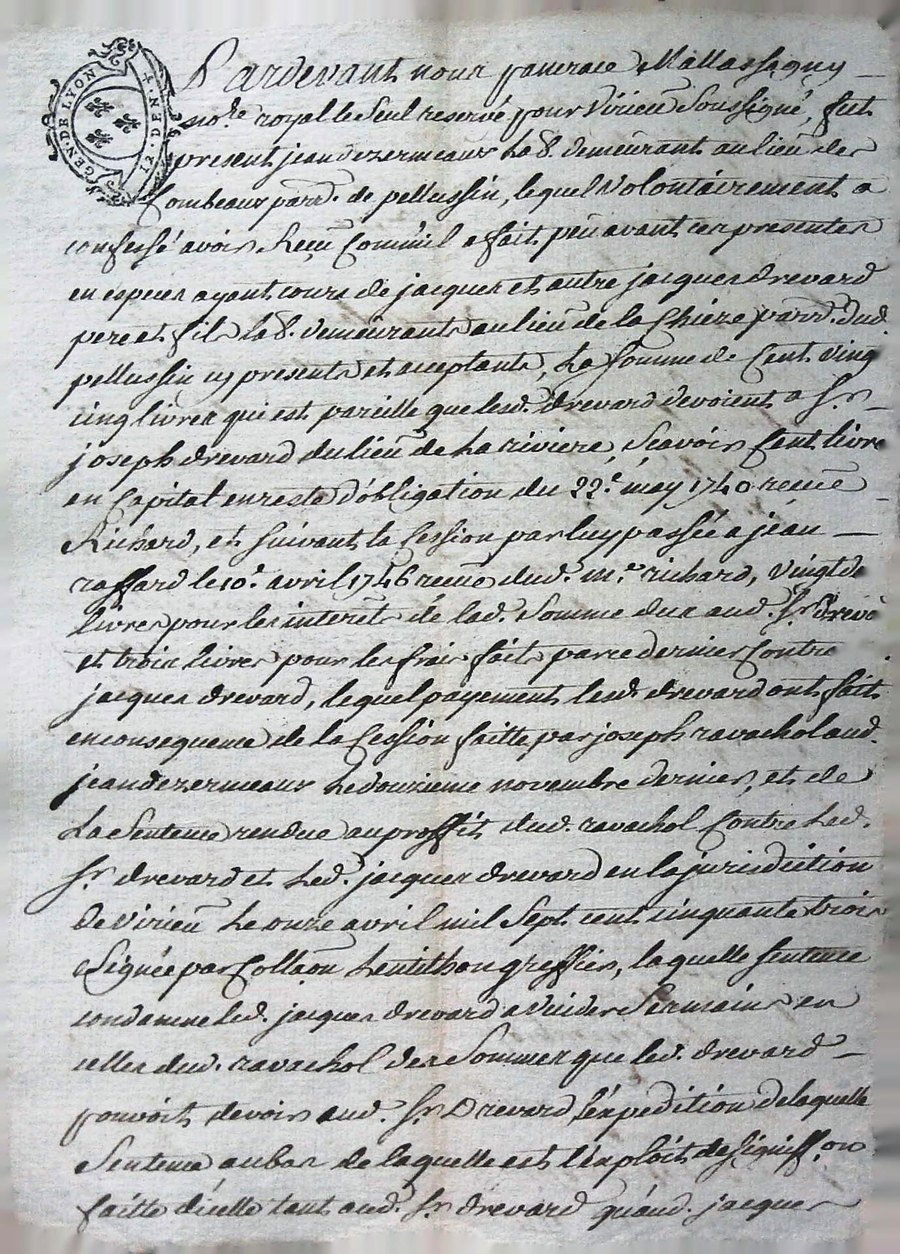 GEN. DE LYON
12. DEN.
Pardevant nous pancrace Mallassagny
no.re royal le Seul reservé pour Virieu Soussigné, fut
present jean dezermeaux La.r demeurant au lieu des
Combeaux parr.e de pellussin, lequel Volontairement a
confessé avoir Reçu Comm'il a fait peu avant ces presentes
en especes ayant cours de jacques et autre jacques drevard
pere et fils la.r demeurants au lieu de la Chieze parr.e dud.
pellussin cy presents et acceptants, La Somme de Cent Ving
cinq livres qui est pareille que lesd. drevard devoient a S.r
joseph drevard du lieu de La riviere, Scavoir Cent livre
en Capital en reste d'obligation du 22.e may 1740 receüe
Richard, et suivant la Cession par luy passée a jean
raffard le 10.e avril 1746 receüe dud. m.e richard, vingt de
livres pour les interêts de lad. Somme dus aud. S.r drevé
et trois livres pour les frais faits par ce dernier Contre
jacques drevard, lequel payement lesd. drevard ont fait
en consequence de la Cession faitte par joseph ravachol aud.
jean dezermeaux Le douzieme novembre dernier, et de
La Sentence rendue au proffit dud. ravachol Contre Led.
S.r drevard et Led. jacques drevard en la jurisdiction
de virieu Le onze avril mil Sept cent cinquante trois
Signée par Collaon Lentilhon greffier, laquelle Sentence
condamne Led. jacques drevard a Vuider Ses mains en
celles dud. ravachol des Sommes que led. drevard
pouvoit devoir aud. S.r Drevard l'expedition de laquelle
Sentence au bas de laquelle est l'exploit de Signiff.on
faitte d'icelle tant aud. S.r drevard qu'aud. jacques